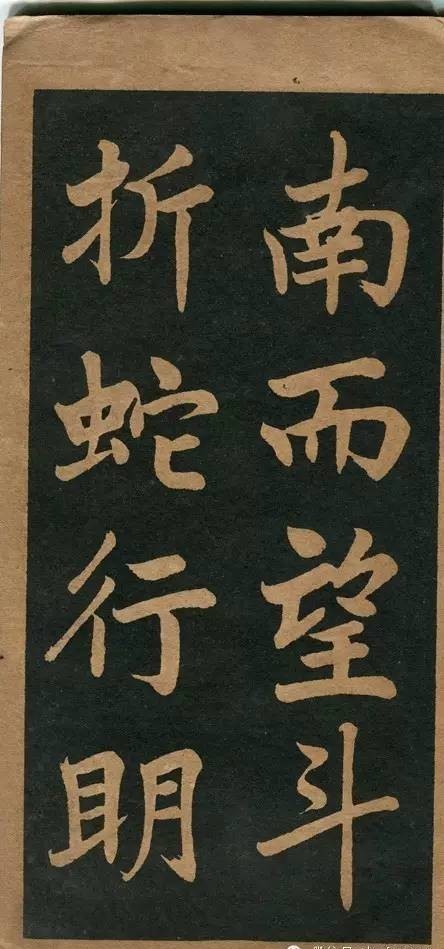 南而望斗
折蛇行明